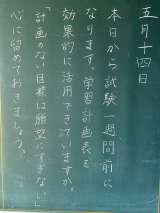 五月十四日
本日から試験一週間前に
なります。学習計画表を
効果的に活用できていますか。
「計画のない目標は願望にすぎない」
心に留めておきましょう。